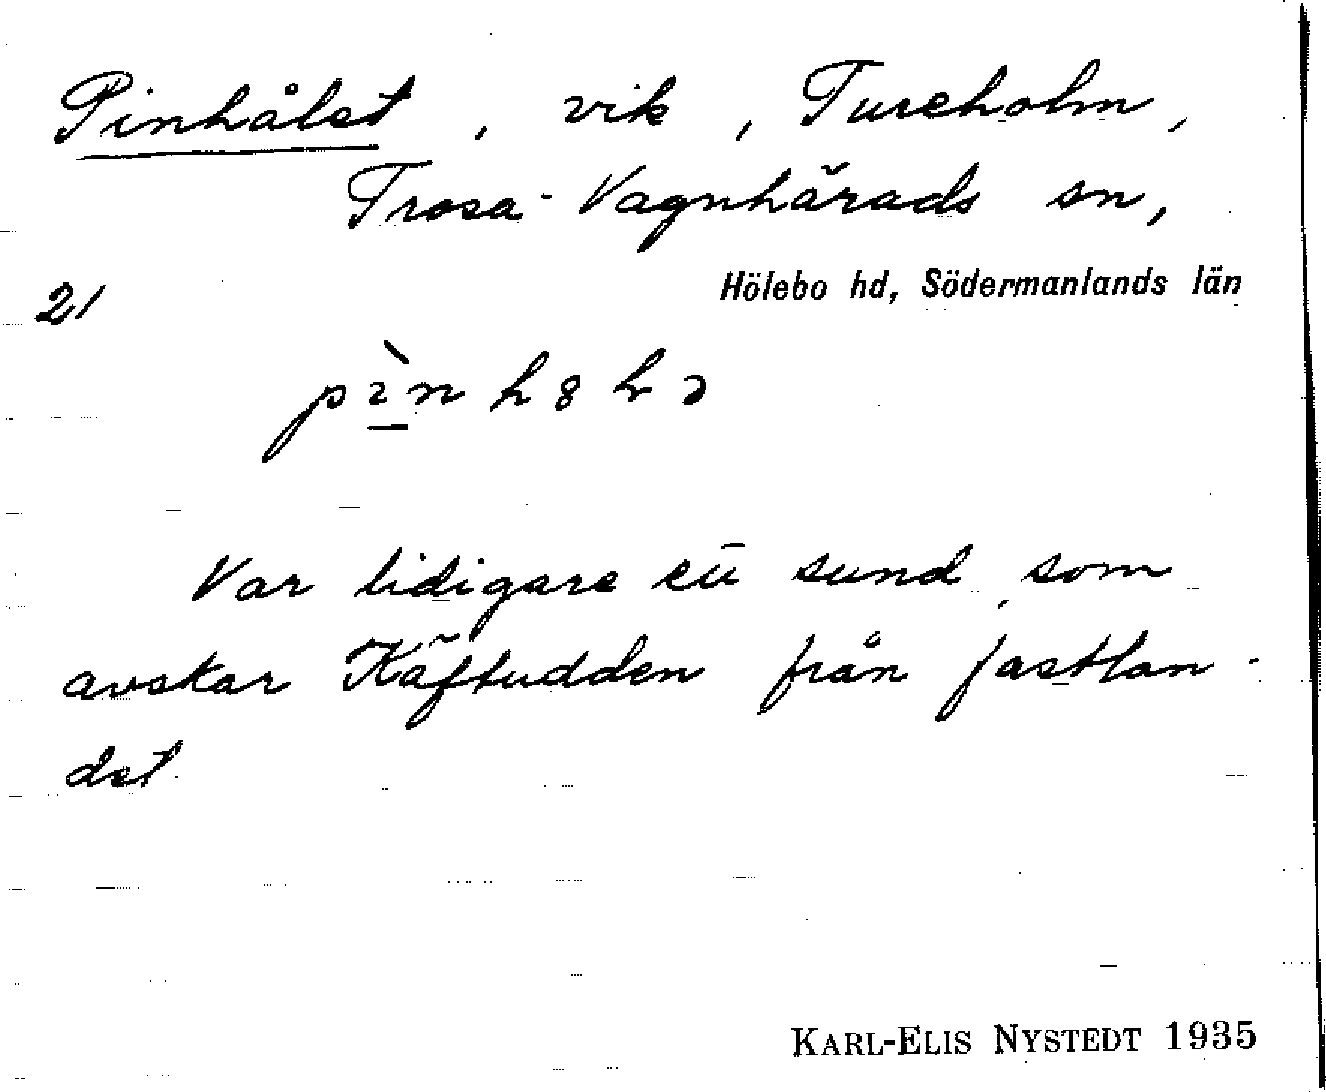 Pinhålet, vik, Tureholm,
Trosa-Vagnhärads sn,
Hölebo hd, Södermanlands län
21
Var tidigare ett sund, som
avskar Käftudden från fastlan-
det
KARL-ELIS NYSTEDT 1935